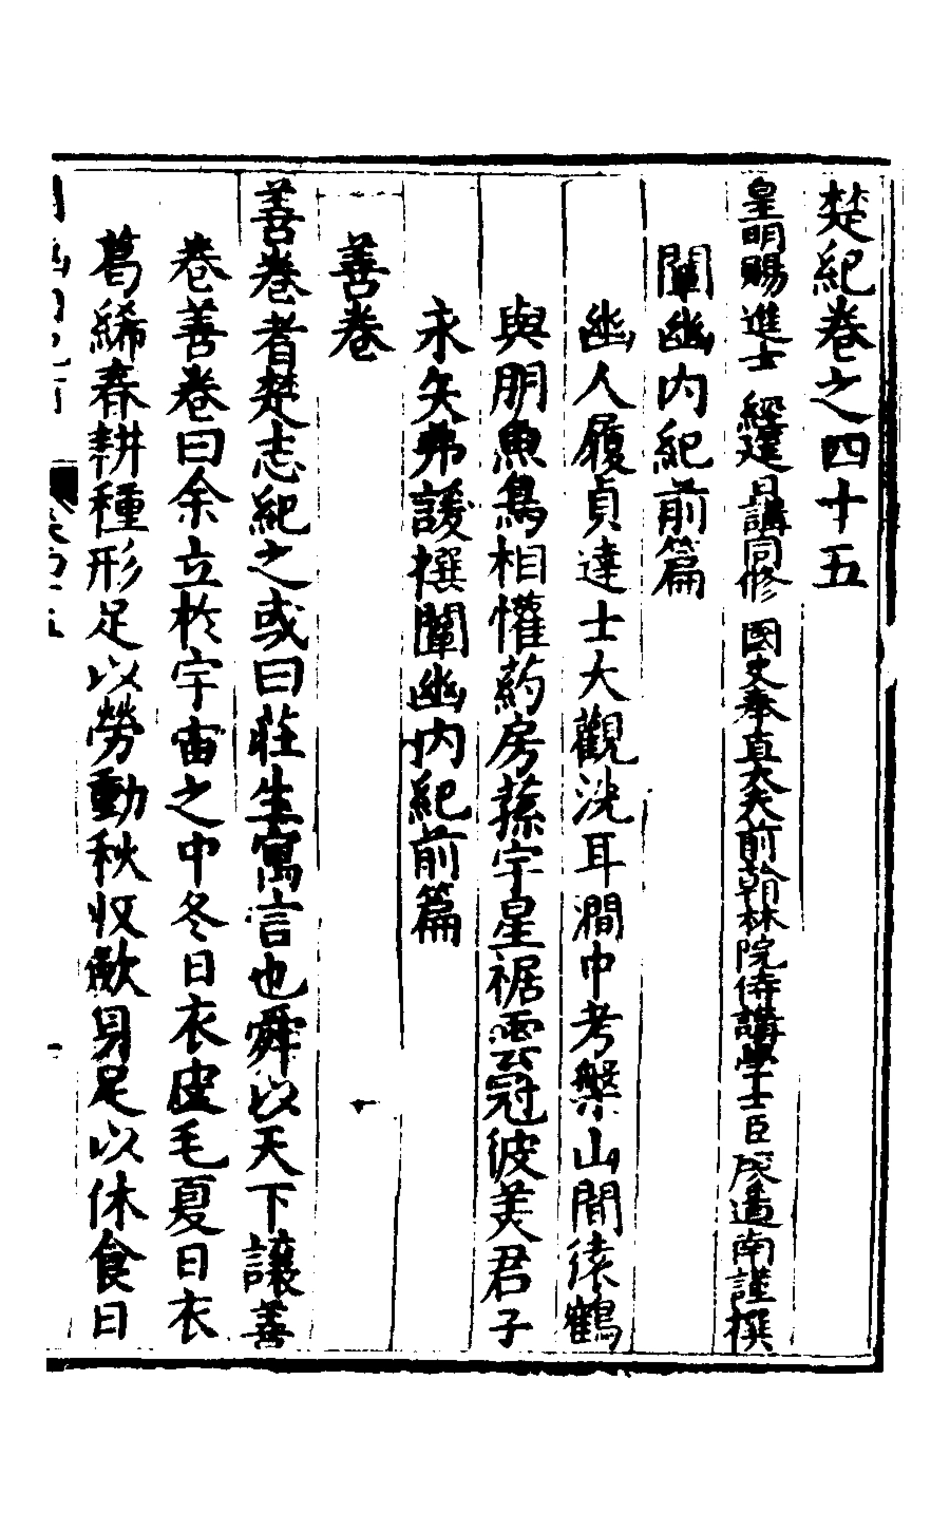 楚紀卷之四十五
皇明賜進士 經筵日講同修 國史奉直大夫前翰林院侍講學士臣廖道南謹撰
闡幽内紀前篇
幽人履貞達士大觀洗耳澗中考槃山間猿鶴
與朋魚鳥相懽葯房蓀宇星裾雲冠彼美君子
永矢弗諼撰闡幽内紀前篇
善卷
善卷者楚志紀之或曰莊生寓言也舜以天下讓善
卷善卷曰余立於宇宙之中冬日衣皮毛夏日衣
葛絺春耕種形足以勞動秋收歛身足以休食日